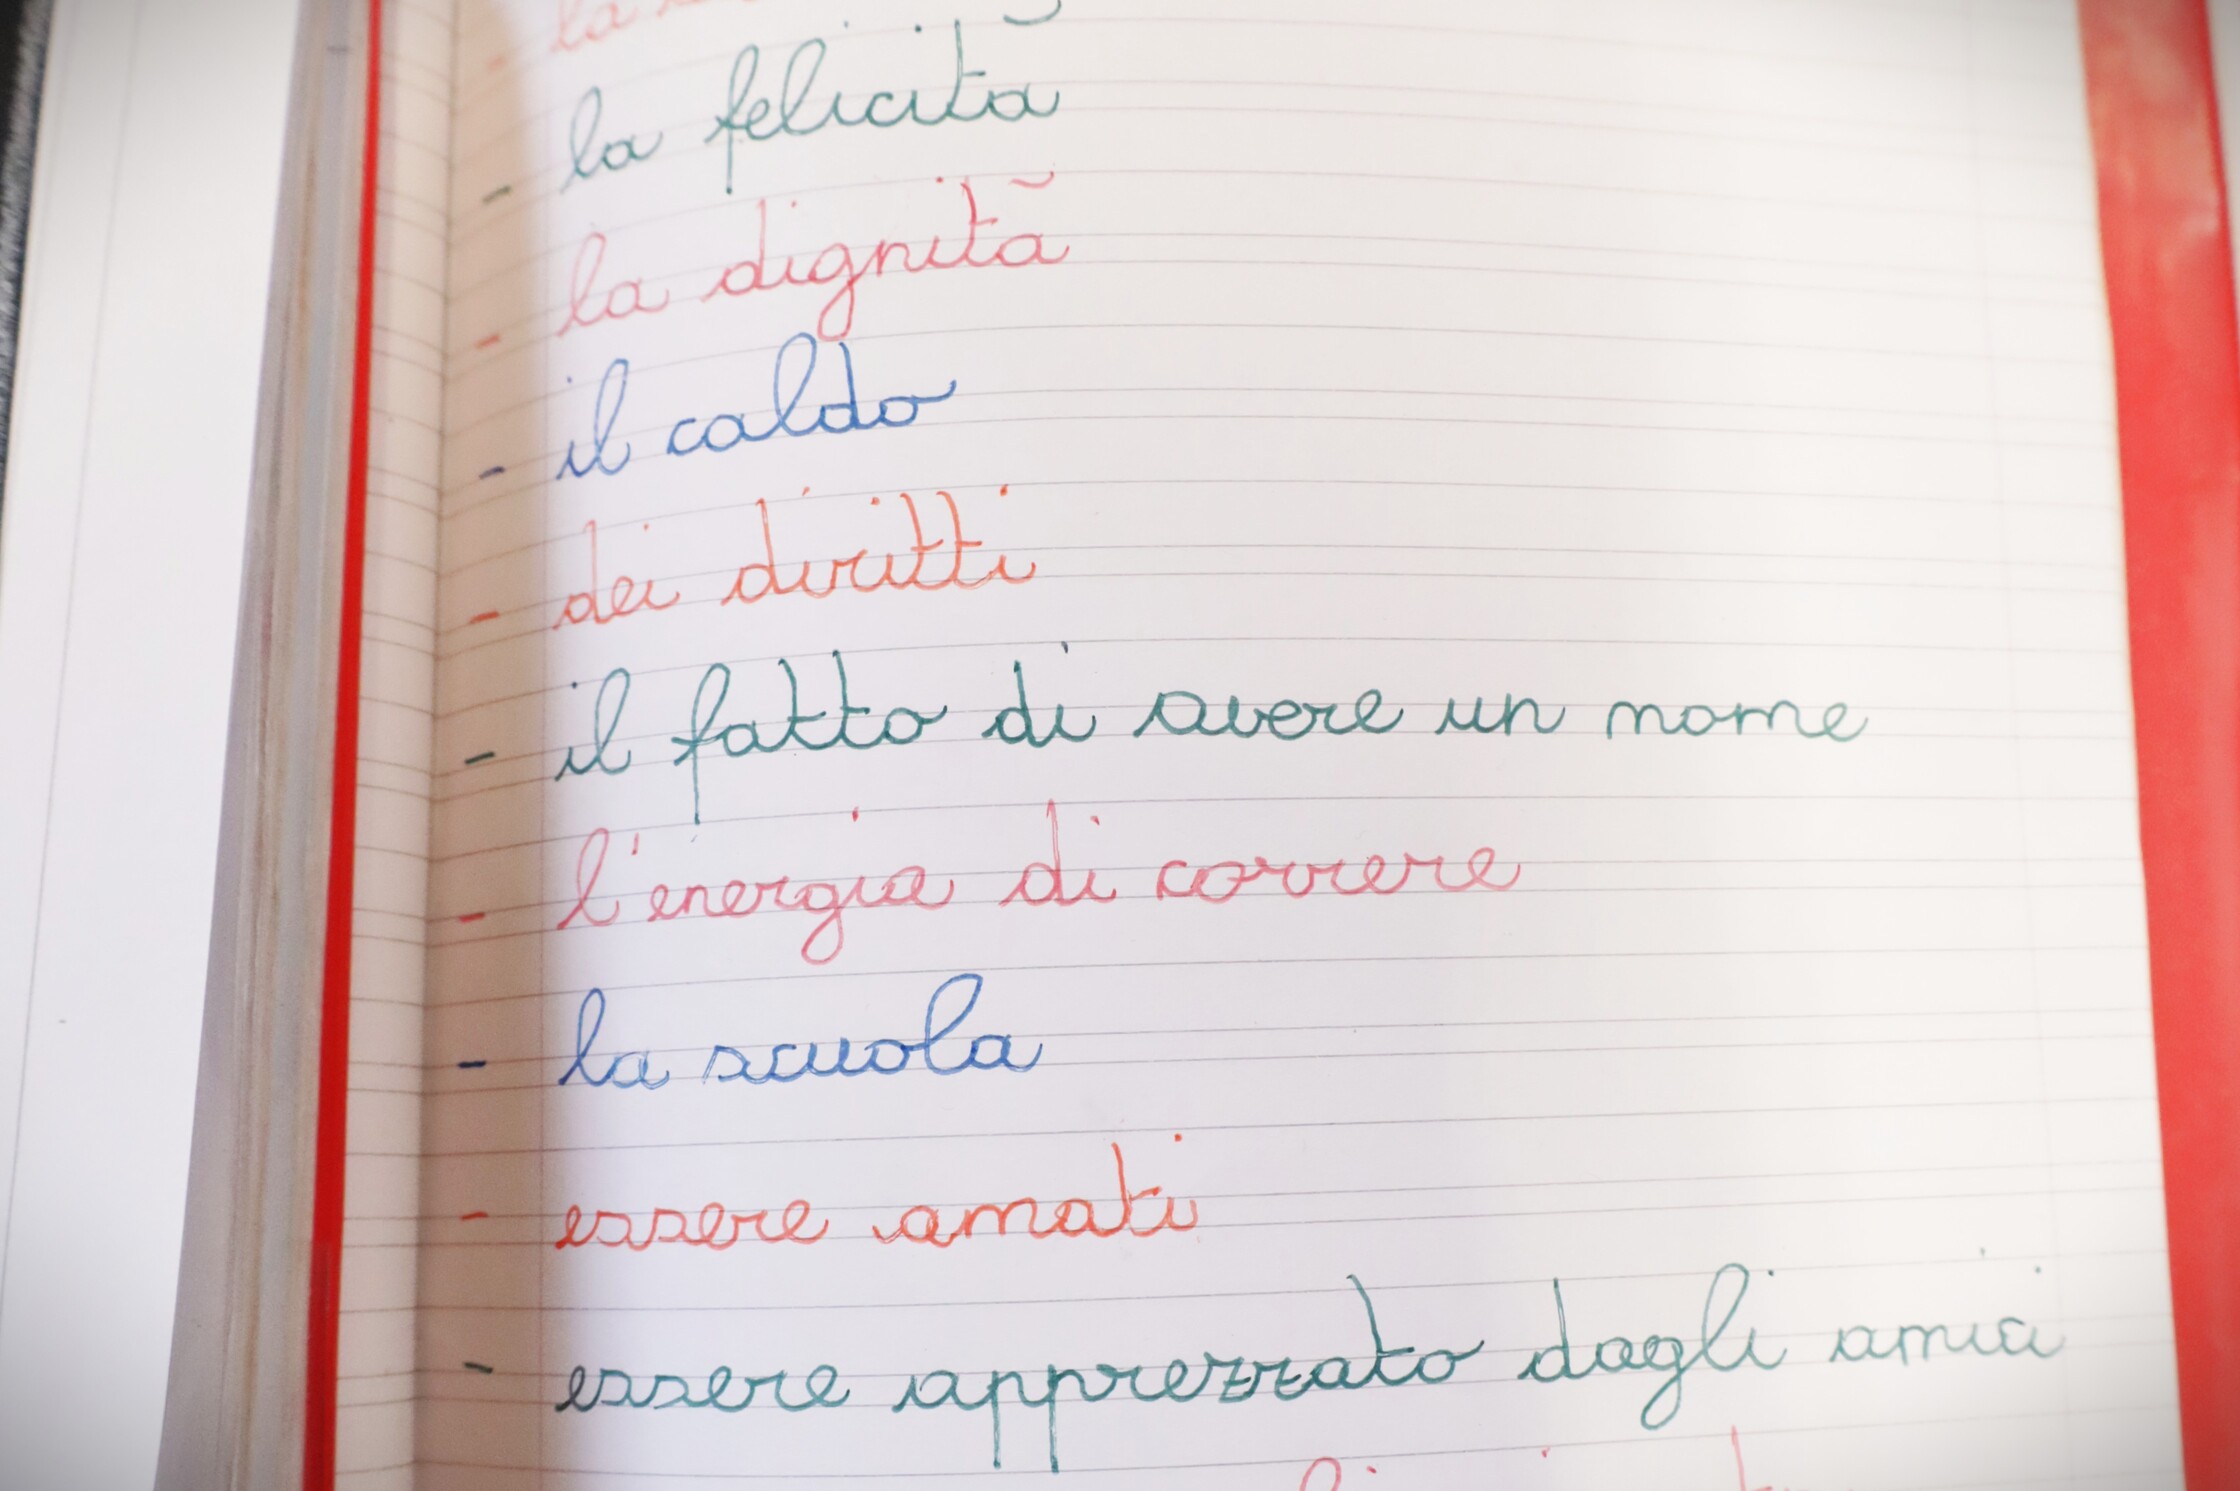 - la felicità
- la dignità
- il caldo
- dei diritti
- il fatto di avere un nome
- l'energia di correre
- la scuola
- essere amati
- essere apprezzato dagli amici